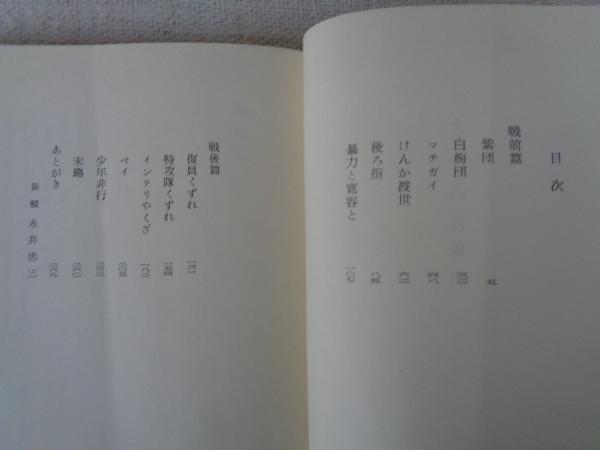 目次
戦前篇
紫団 五
白梅団 三二
マチガイ 四八
けんか渡世 六二
後ろ指 八五
暴力と寛容と 一〇七
戦後篇
復員くずれ 一三一
特攻隊くずれ 一五四
インテリやくざ 一八二
ペイ 二〇五
少年非行 二三三
末路 二六〇
あとがき 二六九
装幀 永井忠二